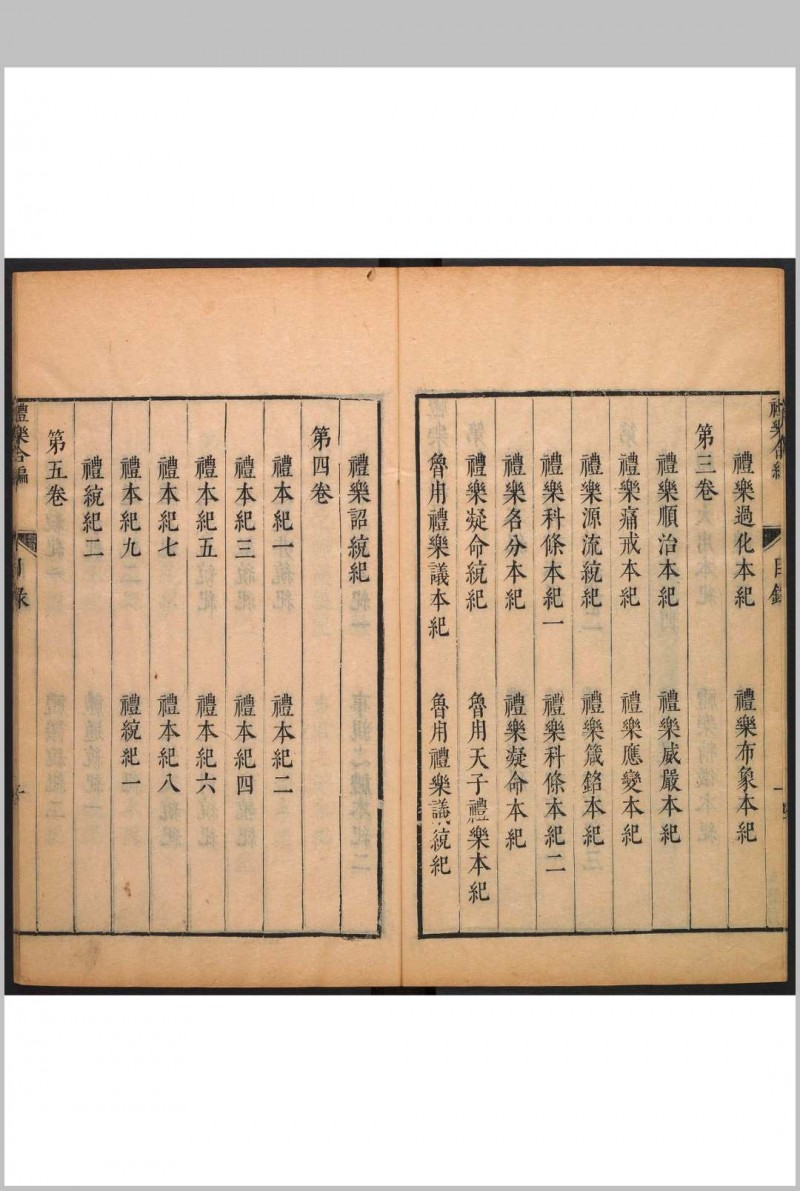 禮樂合編 目錄
禮樂過化本紀 禮樂布象本紀
第三卷
禮樂順治本紀 禮樂威嚴本紀
禮樂痛戒本紀 禮樂應變本紀
禮樂源流統紀 禮樂箴銘本紀
禮樂科條本紀一 禮樂科條本紀二
禮樂各分本紀 禮樂凝命本紀
禮樂凝命統紀 魯用天子禮樂本紀
魯用禮樂議本紀 魯用禮樂議統紀
禮樂詔統紀
第四卷
禮本紀一 禮本紀二
禮本紀三 禮本紀四
禮本紀五 禮本紀六
禮本紀七 禮本紀八
禮本紀九 禮統紀一
禮統紀二
第五卷
禮樂合編 目錄